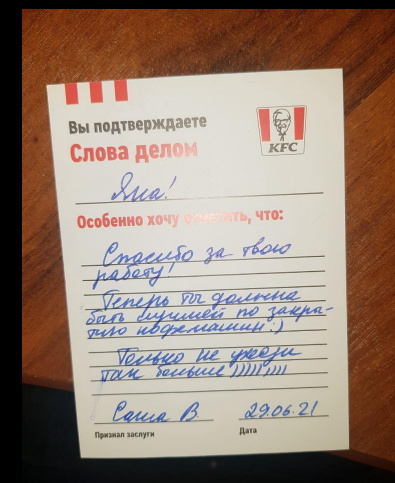 Вы подтверждаете
Слова делом
KFC
Яна!
Особенно хочу отметить, что:
Спасибо за твою
работу!
Теперь ты должна
быть лучшей по закры-
тию кофемашин :)
Только не уходи
так больше )))))))))
Саша В. 29.06.21
Признал заслуги Дата